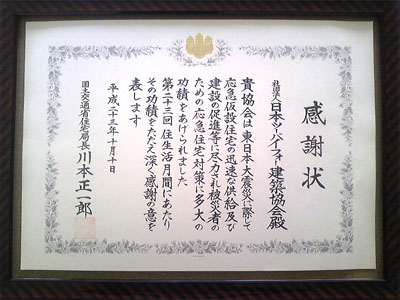 感謝状
社団法人日本ツーバイフォー建築協会殿
貴協会は東日本大震災に際して
応急仮設住宅の迅速な供給及び
建設の促進等に尽力され被災者の
ための応急住宅対策に多大の
功績をあげられました
第二十三回住生活月間にあたり
その功績をたたえ深く感謝の意を
表します
平成二十三年十月十日
国土交通省住宅局長川本正一郎